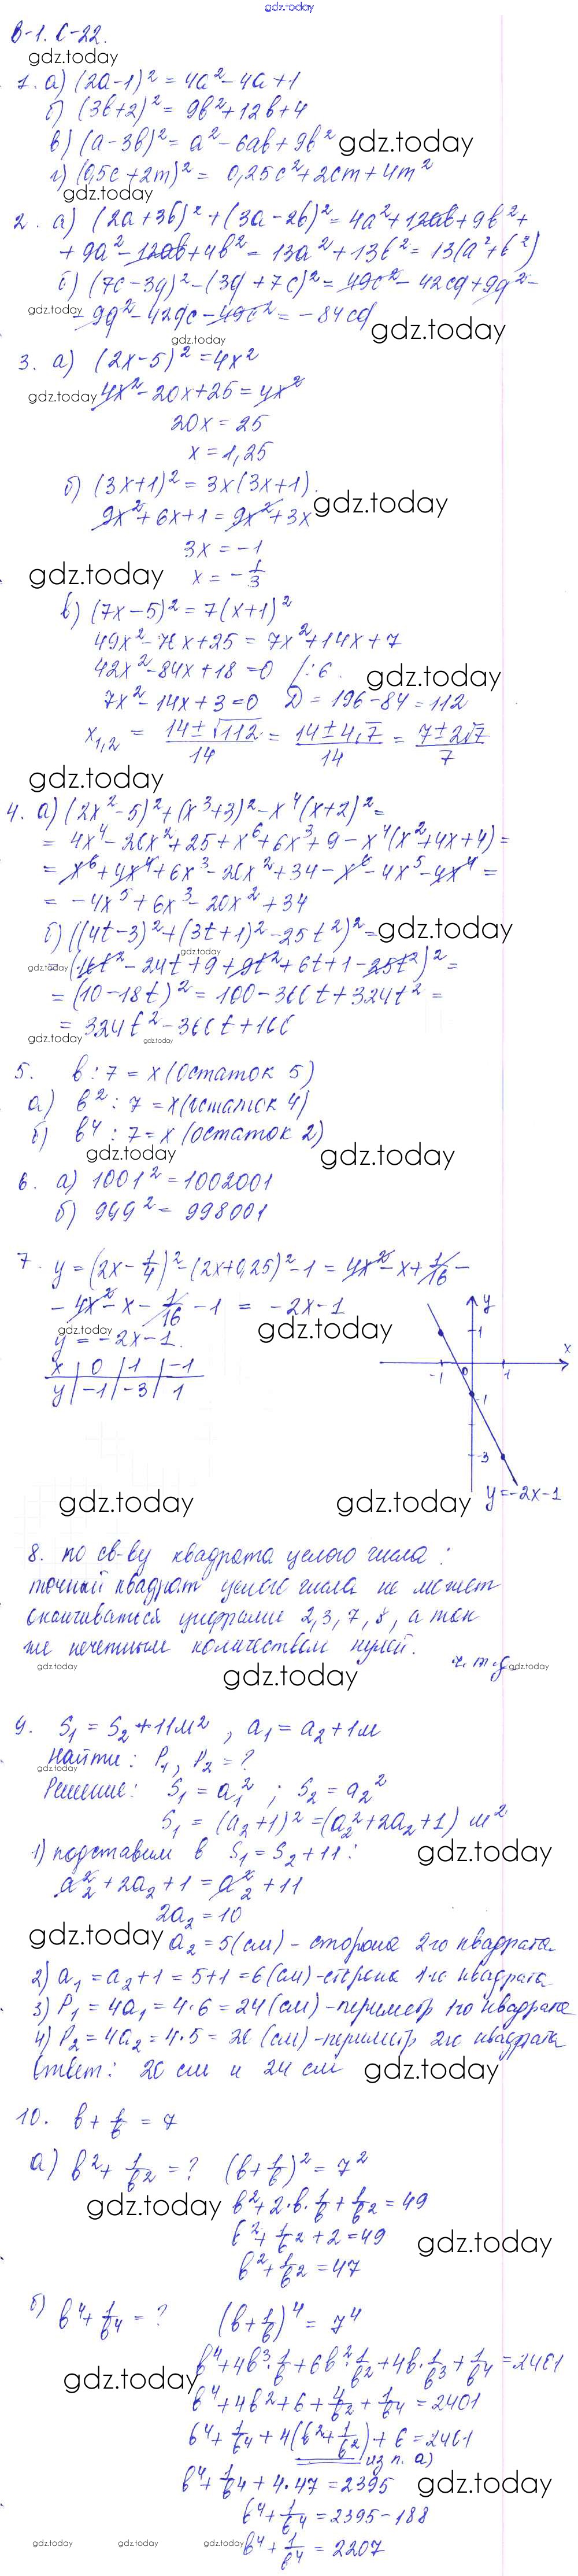 gdz.today
В-1. С-22.
gdz.today
1. а) (2a-1)² = 4a² - 4a + 1
б) (3b+2)² = 9b² + 12b + 4
в) (a-3b)² = a² - 6ab + 9b² gdz.today
г) (0,5c + 2m)² = 0,25c² + 2cm + 4m²
gdz.today
2. а) (2a+3b)² + (3a-2b)² = 4a² + 12ab + 9b² +
+ 9a² - 12ab + 4b² = 13a² + 13b² = 13(a²+b²)
б) (7c-3g)² - (3g+7c)² = 49c² - 42cg + 9g² -
gdz.today - 9g² - 42gc - 49c² = -84cg gdz.today
gdz.today
3. а) (2x-5)² = 4x²
gdz.today 4x² - 20x + 25 = 4x²
20x = 25
x = 1,25
б) (3x+1)² = 3x(3x+1).
gdz.today
9x² + 6x + 1 = 9x² + 3x
3x = -1
gdz.today x = -1/3
в) (7x-5)² = 7(x+1)²
49x² - 70x + 25 = 7x² + 14x + 7
42x² - 84x + 18 = 0 /:6. gdz.today
7x² - 14x + 3 = 0 D = 196 - 84 = 112
x₁,₂ = (14 ± √112)/14 = (14 ± 4√7)/14 = (7 ± 2√7)/7
gdz.today
4. а) (2x²-5)² + (x³+3)² - x⁴(x+2)² =
= 4x⁴ - 20x² + 25 + x⁶ + 6x³ + 9 - x⁴(x²+4x+4) =
= x⁶ + 4x⁴ + 6x³ - 20x² + 34 - x⁶ - 4x⁵ - 4x⁴ =
= -4x⁵ + 6x³ - 20x² + 34
б) ((4t-3)² + (3t+1)² - 25t²)² = gdz.today
gdz.today
gdz.today = (16t² - 24t + 9 + 9t² + 6t + 1 - 25t²)² =
= (10 - 18t)² = 100 - 360t + 324t² =
= 324t² - 360t + 100
gdz.today gdz.today
5. b : 7 = x (остаток 5)
а) b² : 7 = x (остаток 4)
б) b⁴ : 7 = x (остаток 2)
gdz.today gdz.today
6. а) 1001² = 1002001
б) 999² = 998001
7. y = (2x - 1/4)² - (2x + 0,25)² - 1 = 4x² - x + 1/16 -
- 4x² - x - 1/16 - 1 = -2x - 1
gdz.today gdz.today
y = -2x - 1.
x | 0 | 1 | -1
y | -1 | -3 | 1
y
1
x
-1 0 1
-1
-3
y = -2x - 1
gdz.today gdz.today
8. по св-ву квадрата целого числа:
точный квадрат целого числа не может
оканчиваться цифрами 2, 3, 7, 8, а так
же нечетным количеством нулей.
gdz.today ч.т.д. gdz.today
gdz.today
9. S₁ = S₂ + 11м², a₁ = a₂ + 1м
Найти: P₁, P₂ = ?
gdz.today
Решение: S₁ = a₁²; S₂ = a₂²
S₁ = (a₂+1)² = (a₂² + 2a₂ + 1) м²
1) подставим в S₁ = S₂ + 11: gdz.today
a₂² + 2a₂ + 1 = a₂² + 11
2a₂ = 10
gdz.today a₂ = 5 (см) - сторона 2-го квадрата.
2) a₁ = a₂ + 1 = 5 + 1 = 6 (см) - сторона 1-го квадрата
3) P₁ = 4a₁ = 4·6 = 24 (см) - периметр 1го квадрата
4) P₂ = 4a₂ = 4·5 = 20 (см) - периметр 2го квадрата
Ответ: 20 см и 24 см gdz.today
10. b + 1/b = 7
а) b² + 1/b² = ? (b + 1/b)² = 7²
gdz.today b² + 2·b·1/b + 1/b² = 49
b² + 1/b² + 2 = 49 gdz.today
b² + 1/b² = 47
б) b⁴ + 1/b⁴ = ? (b + 1/b)⁴ = 7⁴
b⁴ + 4b³·1/b + 6b²·1/b² + 4b·1/b³ + 1/b⁴ = 2401
gdz.today
b⁴ + 4b² + 6 + 4/b² + 1/b⁴ = 2401
b⁴ + 1/b⁴ + 4(b² + 1/b²) + 6 = 2401
из п. а)
b⁴ + 1/b⁴ + 4·47 = 2395 gdz.today
b⁴ + 1/b⁴ = 2395 - 188
gdz.today gdz.today gdz.today
b⁴ + 1/b⁴ = 2207